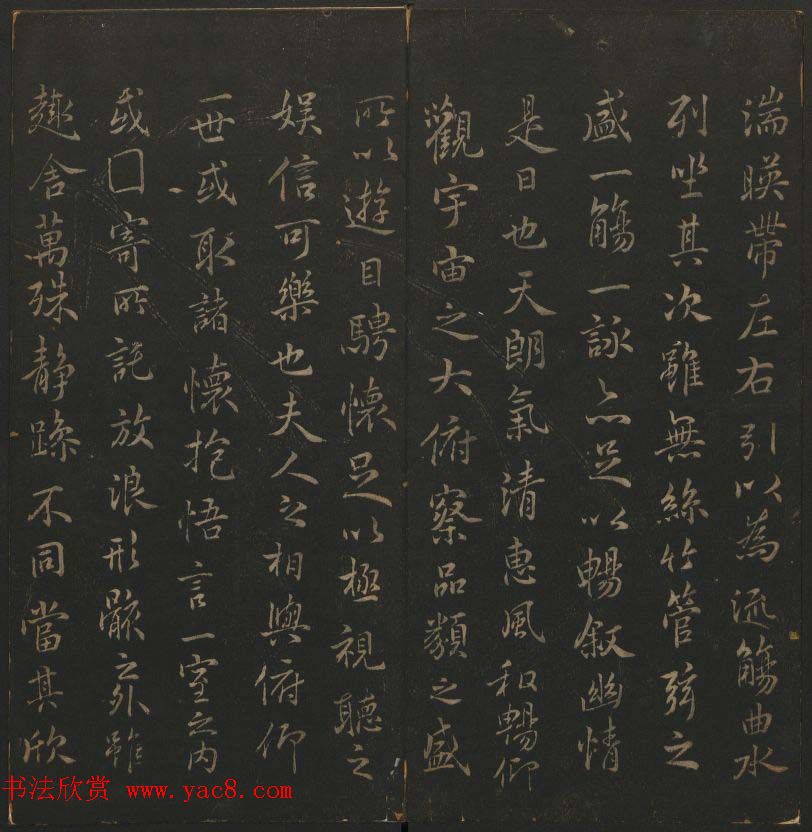 湍暎帶左右引以為流觴曲水
列坐其次雖無絲竹管弦之
盛一觴一詠亦足以暢敘幽情
是日也天朗氣清惠風和暢仰
觀宇宙之大俯察品類之盛
所以遊目騁懷足以極視聽之
娛信可樂也夫人之相與俯仰
一世或取諸懷抱悟言一室之內
或口寄所託放浪形骸之外雖
趣舍萬殊靜躁不同當其欣
书法欣赏 www.yac8.com